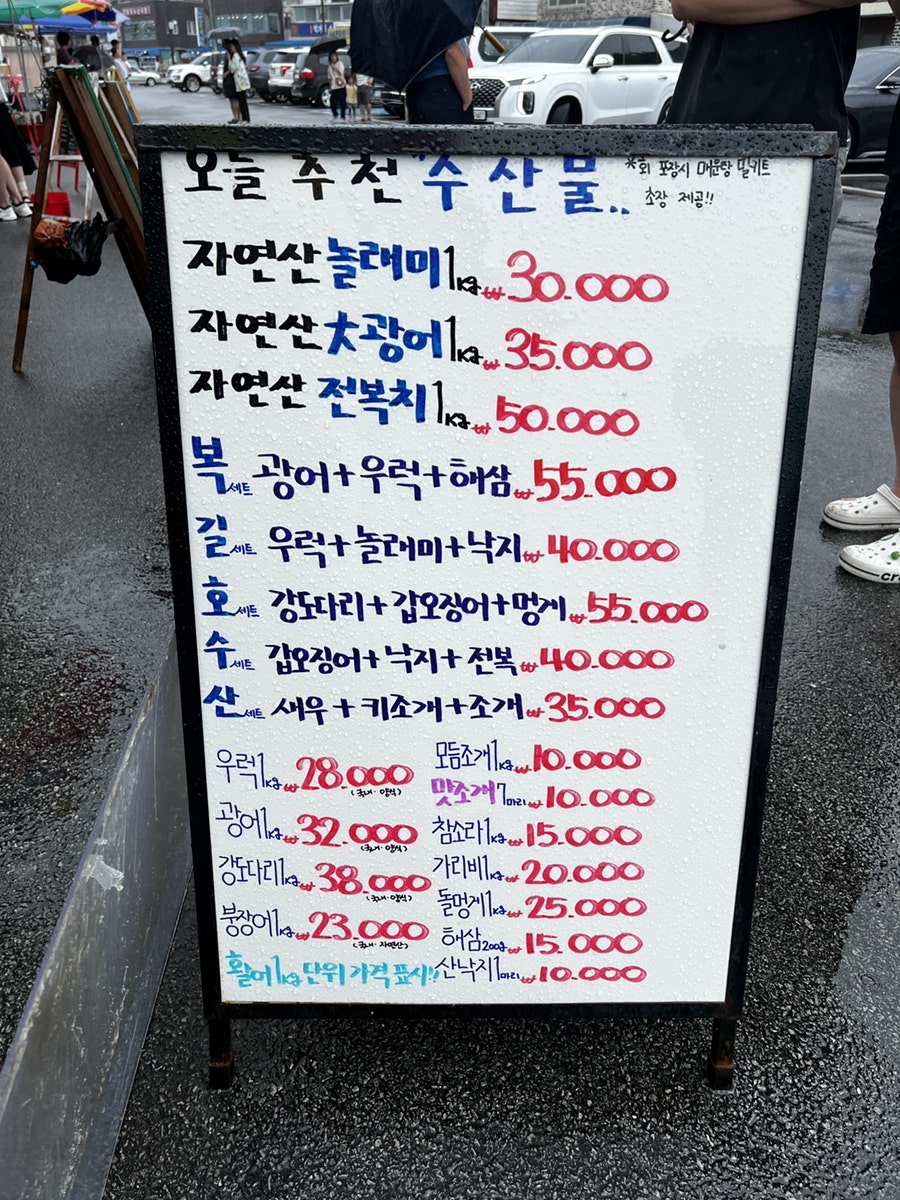 오늘 추천 "수산물..
*회 포장시 매운탕 밀키트
초장 제공!!
자연산 놀래미 1kg ₩30.000
자연산 大광어 1kg ₩35.000
자연산 전복치 1kg ₩50.000
복세트 광어+우럭+해삼 ₩55.000
길세트 우럭+놀래미+낙지 ₩40.000
호세트 강도다리+갑오징어+멍게 ₩55.000
수세트 갑오징어+낙지+전복 ₩40.000
산세트 새우+키조개+조개 ₩35.000
우럭1kg ₩28.000
(국내·양식)
광어1kg ₩32.000
(국내·양식)
강도다리1kg ₩38.000
(국내·양식)
붕장어1kg ₩23.000
(국내·자연산)
활어1kg단위 가격 표시!!
모듬조개1kg ₩10.000
맛조개7마리 ₩10.000
참소라1kg ₩15.000
가리비1kg ₩20.000
돌멍게1kg ₩25.000
해삼200g ₩15.000
산낙지1마리 ₩10.000